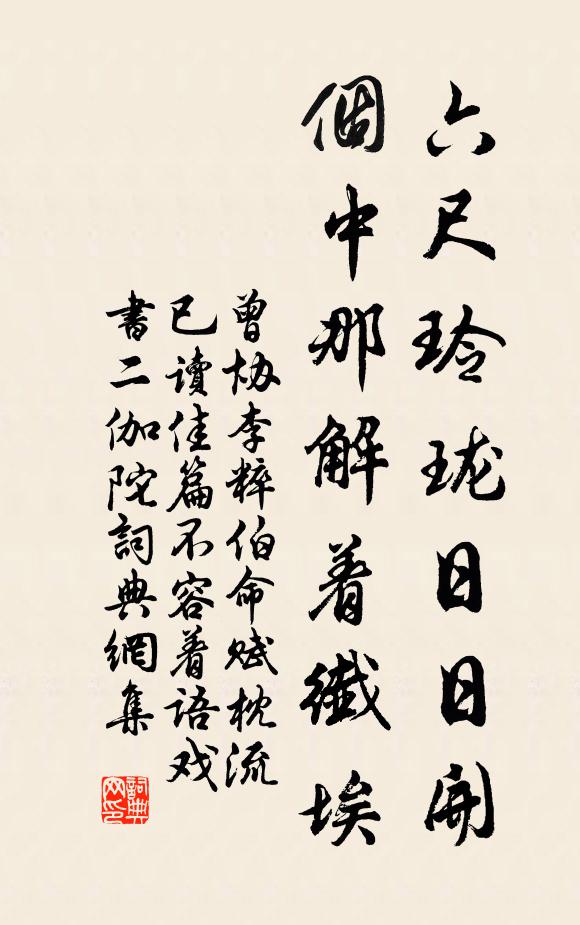 六尺玲珑日日開
個中那解着纖埃
曾协李粹伯命赋枕流
已讀佳篇不容着语戏
書二伽陀詞典網集
詞典网印